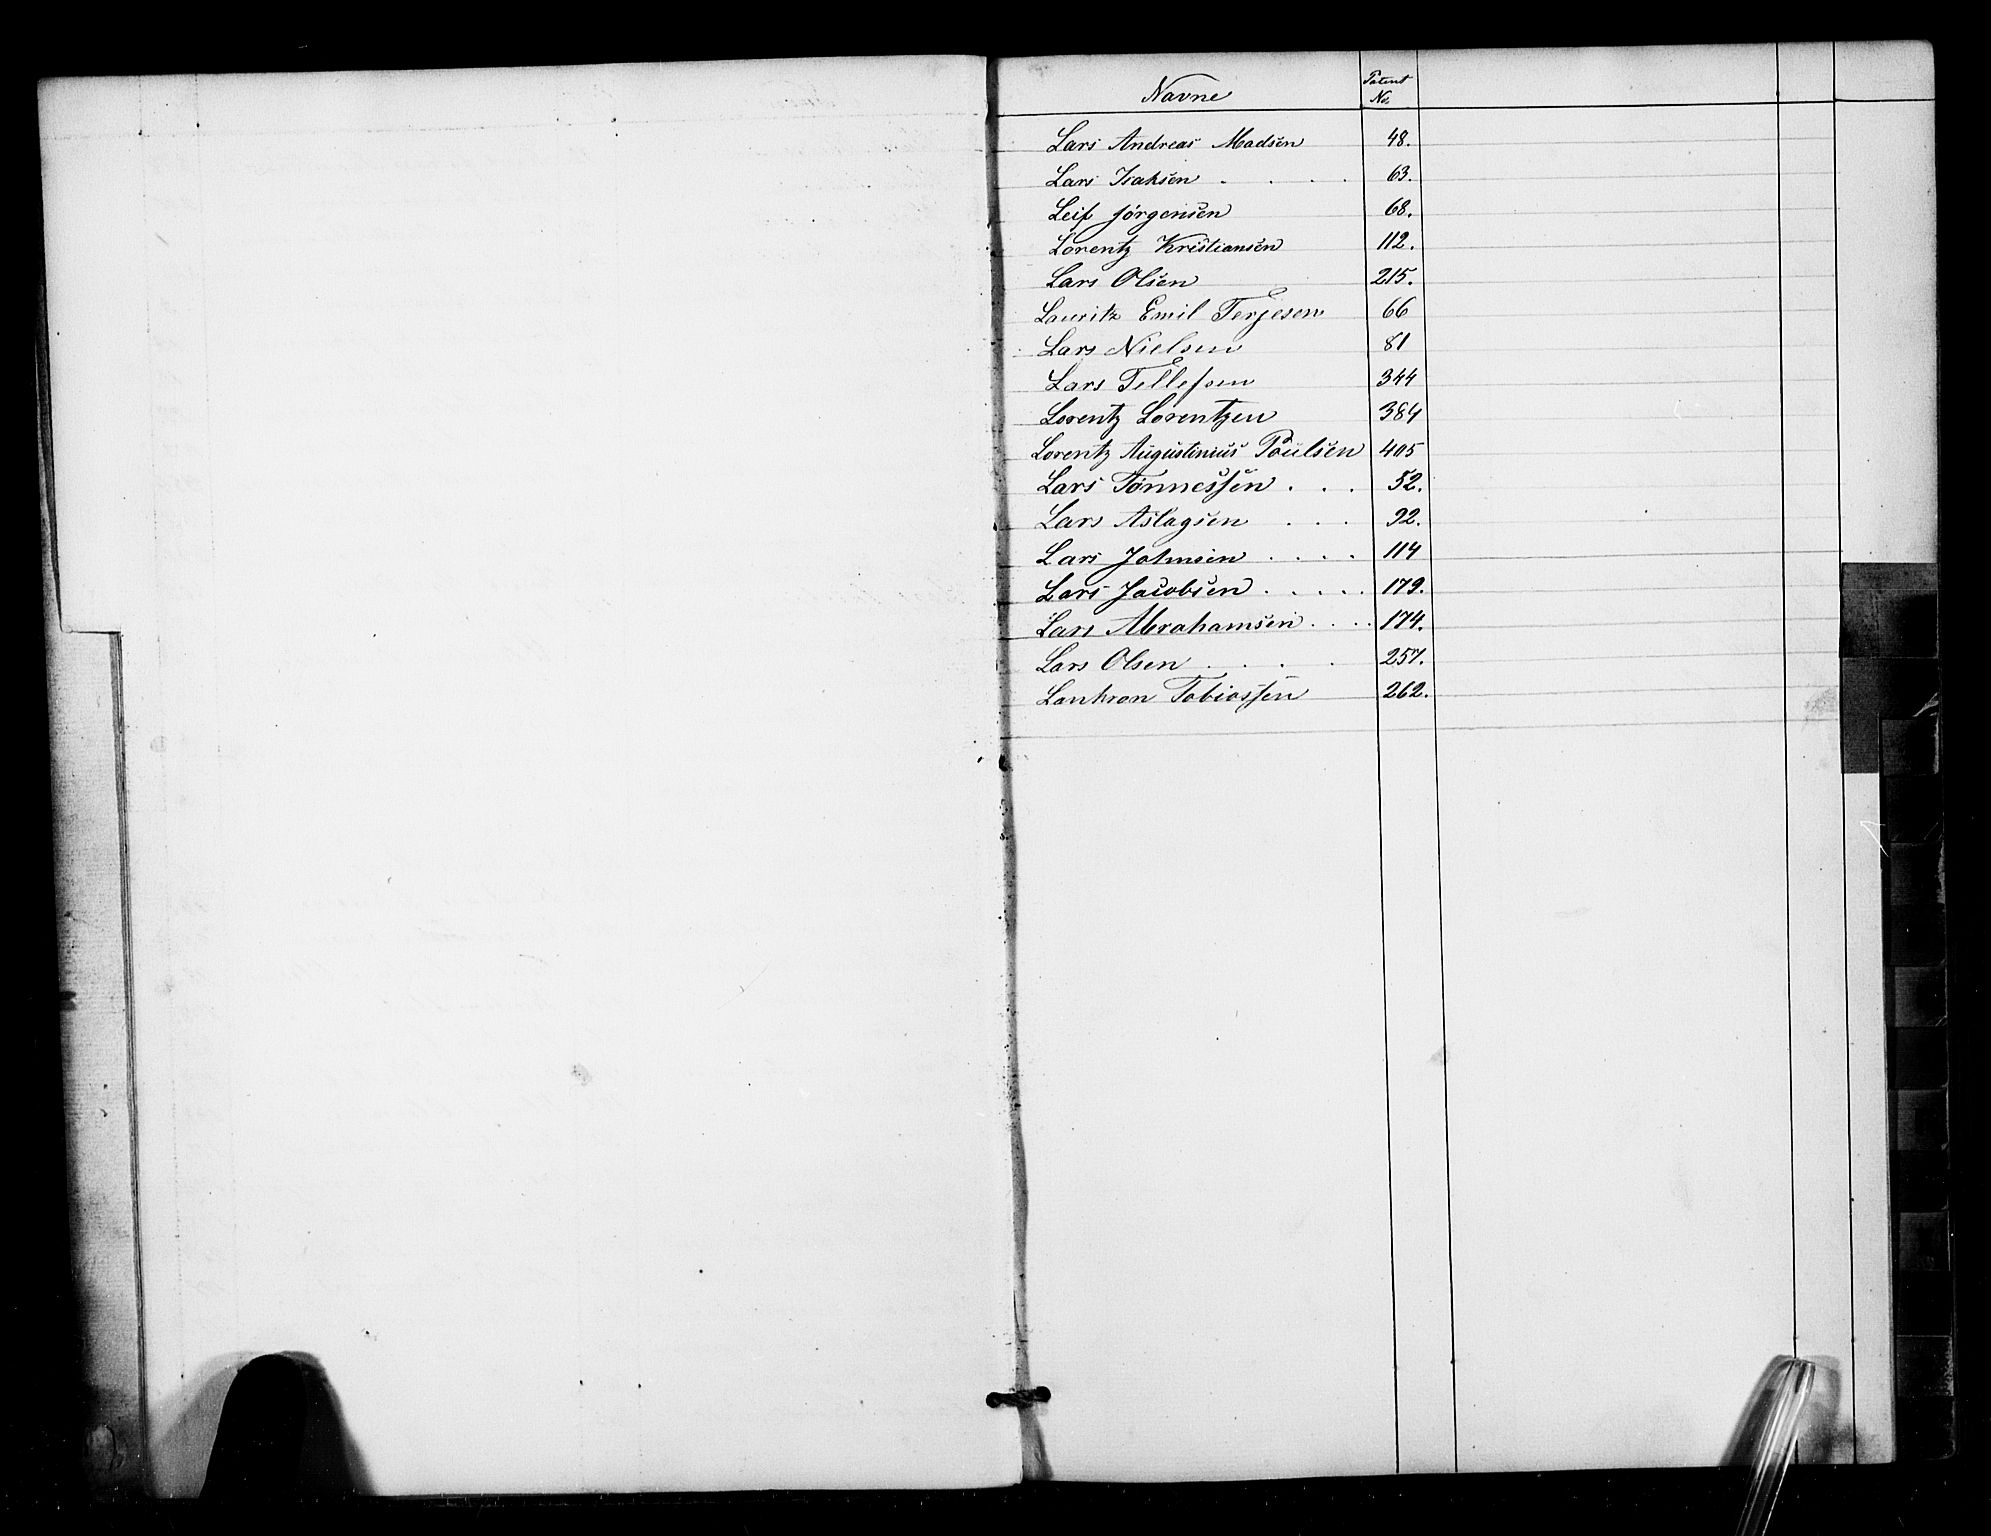 Navne Patent No.
Lars Andreas Madsen 48.
Lars Isaksen . . . . 63.
Leif Jørgensen 68.
Lorentz Kristiansen 112.
Lars Olsen 215.
Lauritz Emil Terjesen 66
Lars Nielsen 81
Lars Tellefsen 344
Lorentz Lorentzen 384
Lorentz Augustinius Poulsen 405
Lars Tønnessen . . . 52.
Lars Aslagsen . . . 92.
Lars Johnsen . . . . 114
Lars Jacobsen . . . . . 179.
Lars Abrahamsen . . . . 174.
Lars Olsen . . . . 257.
Tobiassen 262.